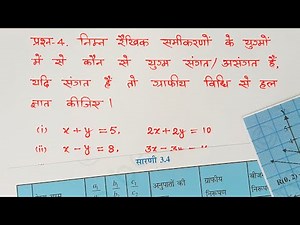 प्रश्न-4. निम्न रैखिक समीकरणों के युग्मों
में से कौन से युग्म संगत/असंगत हैं,
यदि संगत हैं तो ग्राफीय विधि से हल
ज्ञात कीजिए।
(i) x + y = 5. 2x + 2y = 10
(ii) x - y = 8. 3x - 3y =
सारणी 3.4
a₁ b₁ c₁ अनुपातों की ग्राफीय
a₂ b₂ c₂ निरूपण